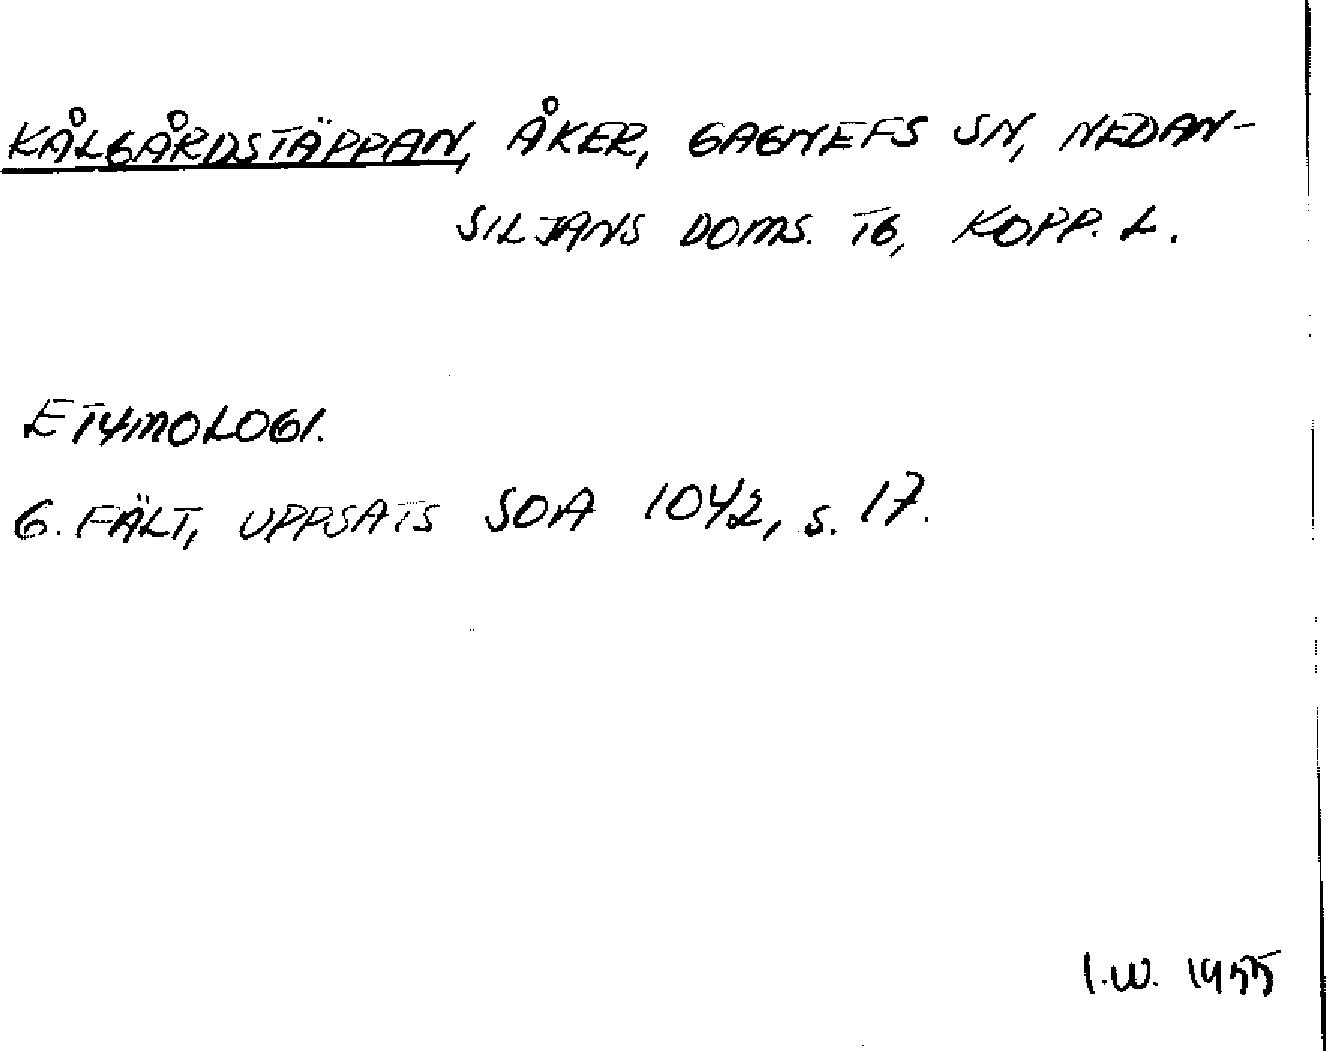 KÅLGÅRDSTÄPPAN, ÅKER, GAGNEFS SN, NEDAN-
SILJANS DOMS. TG, KOPP. L.
ETYMOLOGI.
G. FÄLT, UPPSATS SOA 1042, S. 17.
I.W. 1955